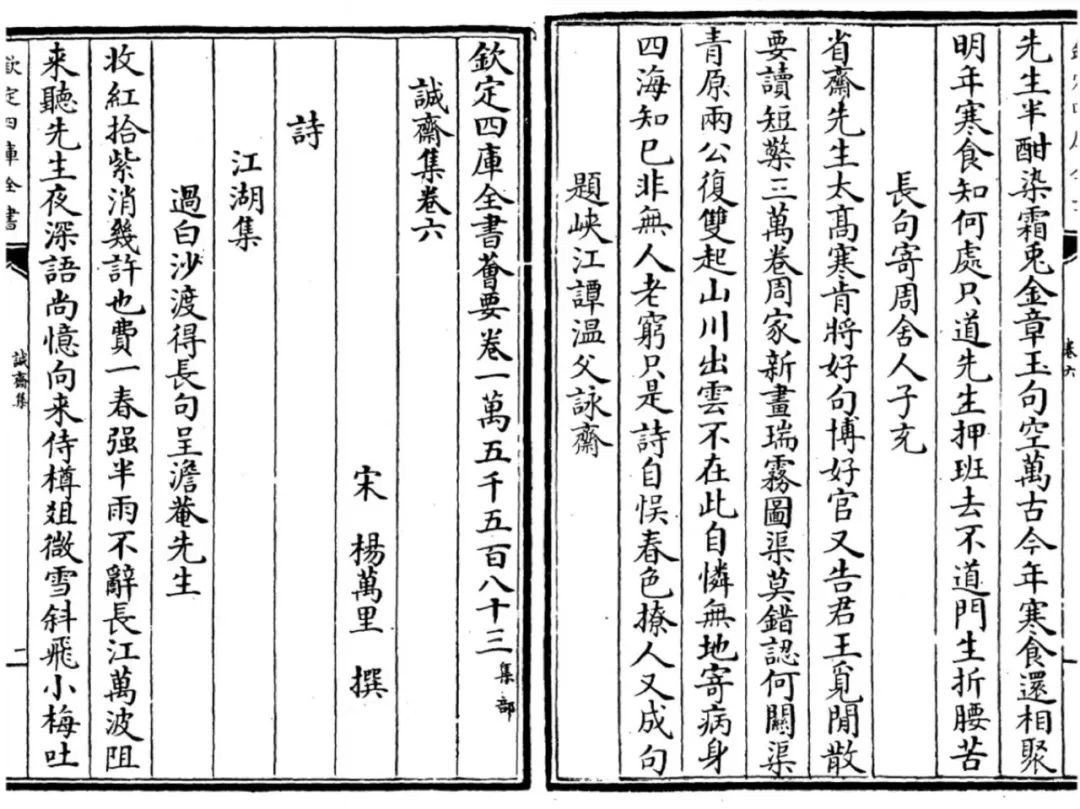 欽定四庫全書薈要卷一萬五千五百八十三 集部
誠齋集卷六
宋 楊萬里 撰
詩
江湖集
過白沙渡得長句呈澹菴先生
收紅拾紫消幾許也費一春强半雨不辭長江萬波阻
来聽先生夜深語尚憶向来侍樽爼微雪斜飛小梅吐
欽定四庫全書
誠齋集
卷六
先生半酣染霜兎金章玉句空萬古今年寒食還相聚
明年寒食知何處只道先生押班去不道門生折腰苦
長句寄周舍人子充
省齋先生太髙寒肯將好句博好官又告君王覓閒散
要讀短檠三萬卷周家新畫瑞霧圖渠莫錯認何闗渠
青原兩公復雙起山川出雲不在此自憐無地寄病身
四海知已非無人老窮只是詩自悞春色撩人又成句
題峽江譚温父詠齋